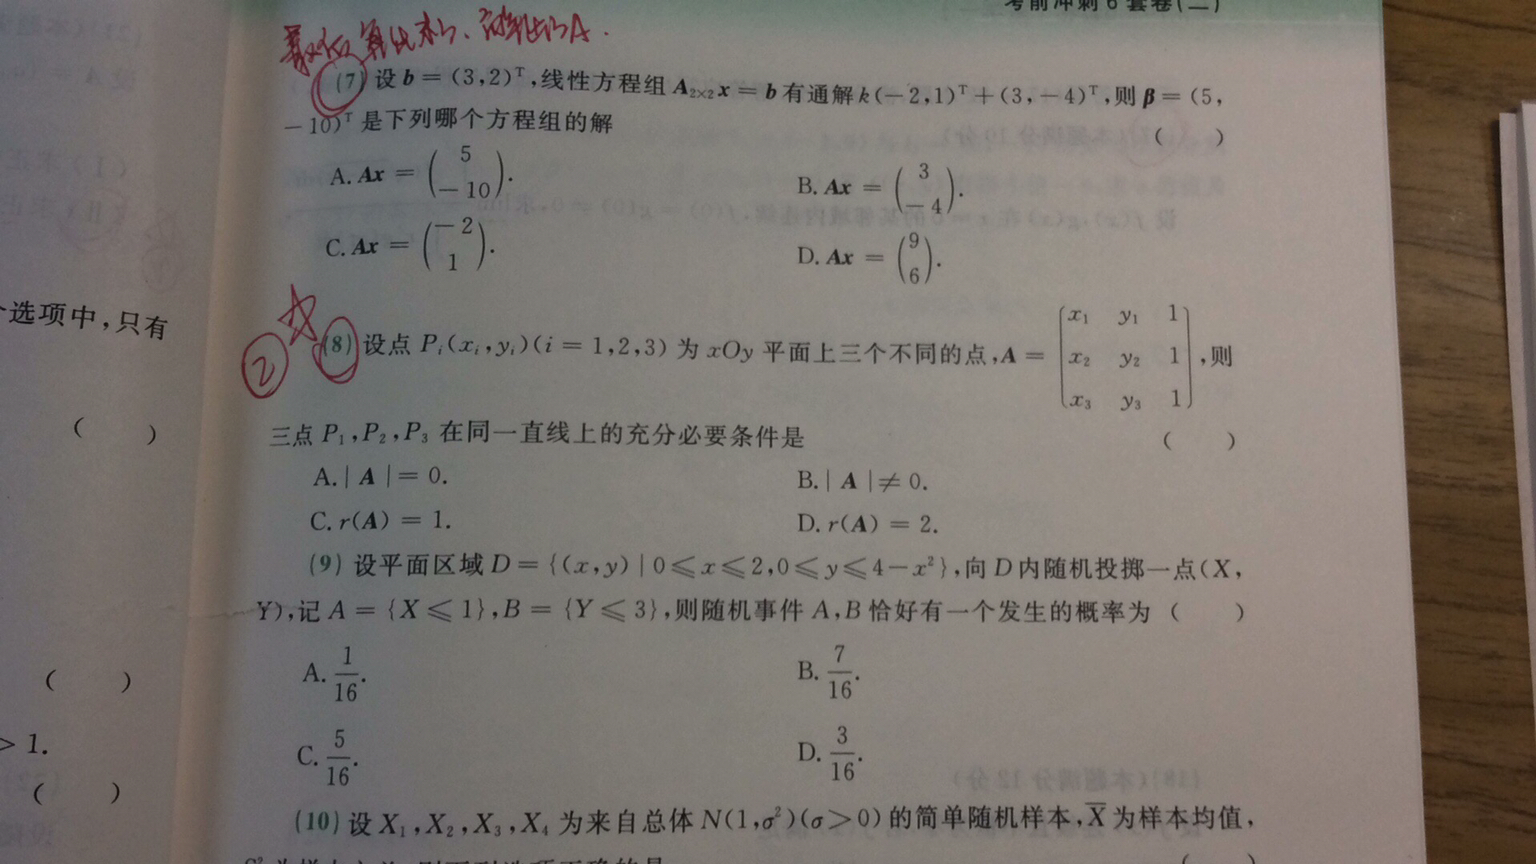 考前冲刺6套卷(二)
(7) 设 b = (3,2)ᵀ,线性方程组 A₂ₓ₂x = b 有通解 k(-2,1)ᵀ+(3,-4)ᵀ,则 β = (5,
-10)ᵀ 是下列哪个方程组的解 ( )
A. Ax = (5 -10). B. Ax = (3 -4).
C. Ax = (-2 1). D. Ax = (9 6).
②
(8) 设点 Pᵢ(xᵢ,yᵢ)(i = 1,2,3) 为 xOy 平面上三个不同的点,A = [x₁ y₁ 1 x₂ y₂ 1 x₃ y₃ 1],则
三点 P₁,P₂,P₃ 在同一直线上的充分必要条件是 ( )
A. | A | = 0. B. | A | ≠ 0.
C. r(A) = 1. D. r(A) = 2.
(9) 设平面区域 D = {(x,y) | 0 ≤ x ≤ 2,0 ≤ y ≤ 4-x²},向 D 内随机投掷一点(X,
Y),记 A = {X ≤ 1},B = {Y ≤ 3},则随机事件 A,B 恰好有一个发生的概率为 ( )
A. 1/16. B. 7/16.
C. 5/16. D. 3/16.
(10) 设 X₁,X₂,X₃,X₄ 为来自总体 N(1,σ²)(σ>0)的简单随机样本,X̄ 为样本均值,
个选项中,只有
( )
( )
> 1.
( )